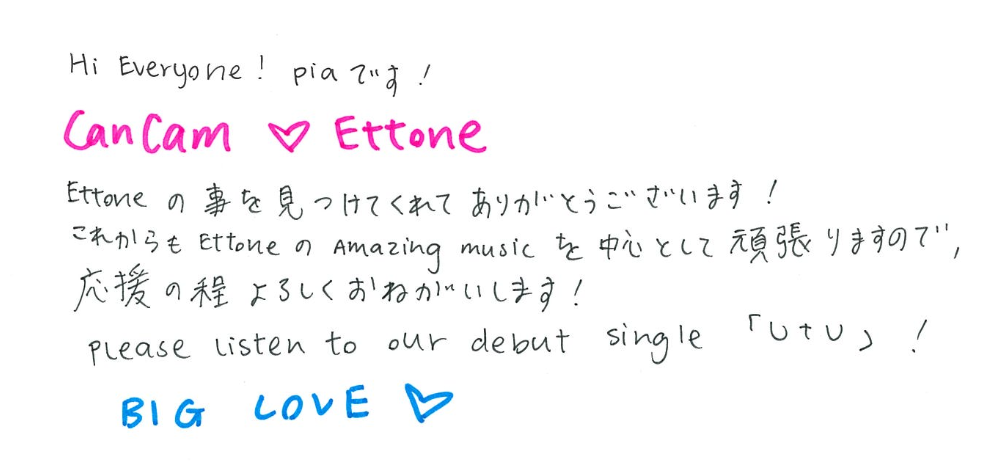 Hi Everyone! piaです!
CanCam ♡ Ettone
Ettoneの事を見つけてくれてありがとうございます!
これからもEttoneのAmazing musicを中心として頑張りますので,
応援の程よろしくおねがいします!
please listen to our debut single 「U+U」!
BIG LOVE ♡